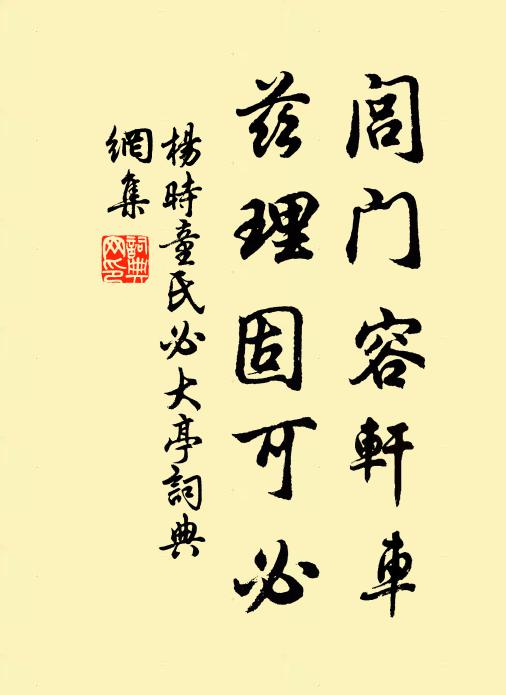 閭门容軒車
茲理固可必
楊時童氏必大亭詞典
網集
詞典
网印